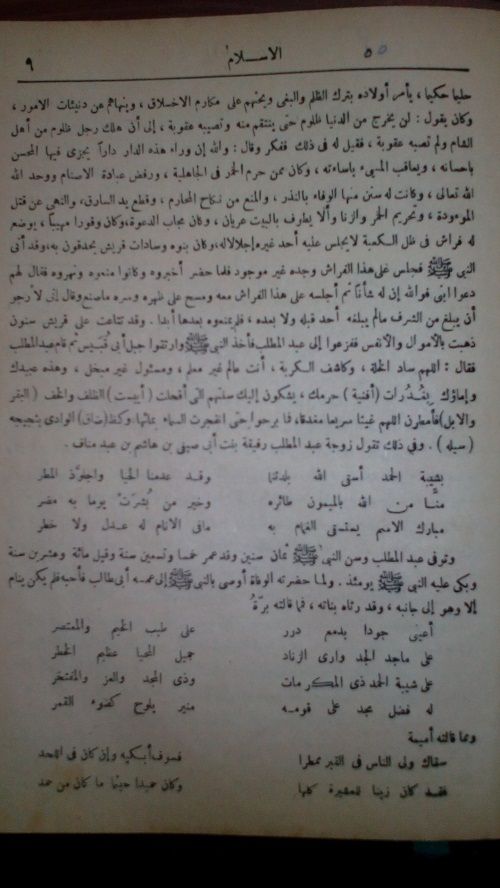 ٥٥ الاســلام ٩
حليما حكيما ، يأمر أولاده بترك الظلم والبغى ويحثهم على مكارم الاخلاق ، وينهاهم عن دنيئات الامور ،
وكان يقول : لن يخرج من الدنيا ظلوم حتى ينتقم منه وتصيبه عقوبة ، إلى أن هلك رجل ظلوم من أهل
الشام ولم تصبه عقوبة ، فقيل له فى ذلك ففكر وقال : والله إن وراء هذه الدار داراً يجزى فيها المحسن
باحسانه ، ويعاقب المسىء باساءته ، وكان ممن حرم الخمر فى الجاهلية ، ورفض عبادة الاصنام ووحد الله
الله تعالى ، وكانت له سنن منها الوفاء بالنذر ، والمنع من نكاح المحارم ، وقطع يد السارق، والنهى عن قتل
الموءودة ، وتحريم الخمر والزنا وألا يطوف بالبيت عريان ، وكان مجاب الدعوة،وكان وقورا مهيبا ، يوضع
له فراش فى ظل الكعبة لايجلس عليه أحد غيره إجلالا له، وكان بنوه وسادات قريش يحدقون به،وقد أتى
النبى ﷺ فجلس على هذا الفراش وجده غير موجود فلما حضر أخبروه وكانوا منعوه ونهروه فقال لهم
دعوا ابنى فوالله إن له شأنا ثم أجلسه على هذا الفراش معه ومسح على ظهره وسره ماصنع وقال إنى لأرجو
أن يبلغ من الشرف مالم يبلغه أحد قبله ولا بعده ، فلم يمنعوه بعدها أبدا . وقد تتاعت على قريش سنون
ذهبت بالأموال والأنفس ففزعوا إلى عبد المطلب فأخذ النبى ﷺ وارتقوا جبل أبى قبيس ثم قام عبدالمطلب
فقال : اللهم ساد الخلة ، وكاشف الكربة ، أنت عالم غير معلم ، ومسئول غير مبخل ، وهذه عبيدك
وإماؤك بِعُذُرات (أفنية) حرمك ، يشكون إليك سنتهم التى أقحلت (أيبست) الظلف والخف (البقر
والابل) فأمطرن اللهم غيثا سريعا مغدقا، فما برحوا حتى انفجرت السماء بمائها، وكظ (ضاق) الوادى بثجيجه
(سيله) . وفى ذلك تقول زوجة عبد المطلب رفيقة بنت أبى صيفى بن هاشم بن عبد مناف .
بشيبة الحمد أسقى الله بلدتنا وقد عدمنا الحيا واجلوَّذ المطر
منـًّا من الله بالميمون طائره وخير من بُشرَت يوما به مضر
مبارك الاسم يستسقى الغمام به مافى الانام له عدل ولا خطر
وتوفى عبد المطلب وسن النبى ﷺ ثمان سنين وقد عمر خمسا وتسعين سنة وقيل مائة وعشرين سنة
وبكى عليه النبى ﷺ يومئذ . ولما حضرته الوفاة أوصى بالنبى ﷺ إلى عمه أبى طالب فأحبه فلم يكن ينام
إلا وهو إلى جانبه ، وقد رثاه بناته ، فمما قالته برّةُ
أعينى جودا بدمع درر على طيب الخيم والمعتصر
على ماجد الجد وارى الزناد جميل المحيا عظيم الخطر
على شيبة الحمد ذى المكرمات وذى المجد والعز والمفتخر
له فضل مجد على قومه منير يلوح كضوء القمر
ومما قالته أميمة
سقاك ولى الناس فى القبر ممطرا فسوف أبكيه وإن كان فى اللحد
فقد كان زينا للعشيرة كلها وكان حميدا حيثما ما كان من حمد